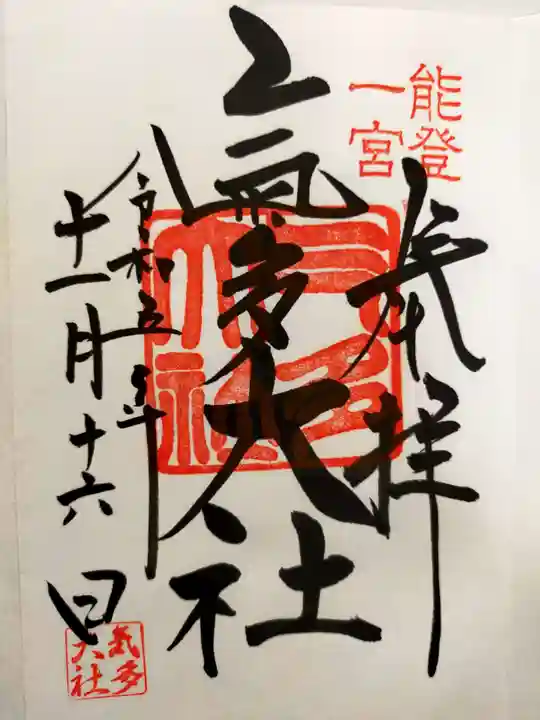 能登
一宮
奉拝
氣多大社
令和五年
十一月十六日
气多
大社
氣多
大社